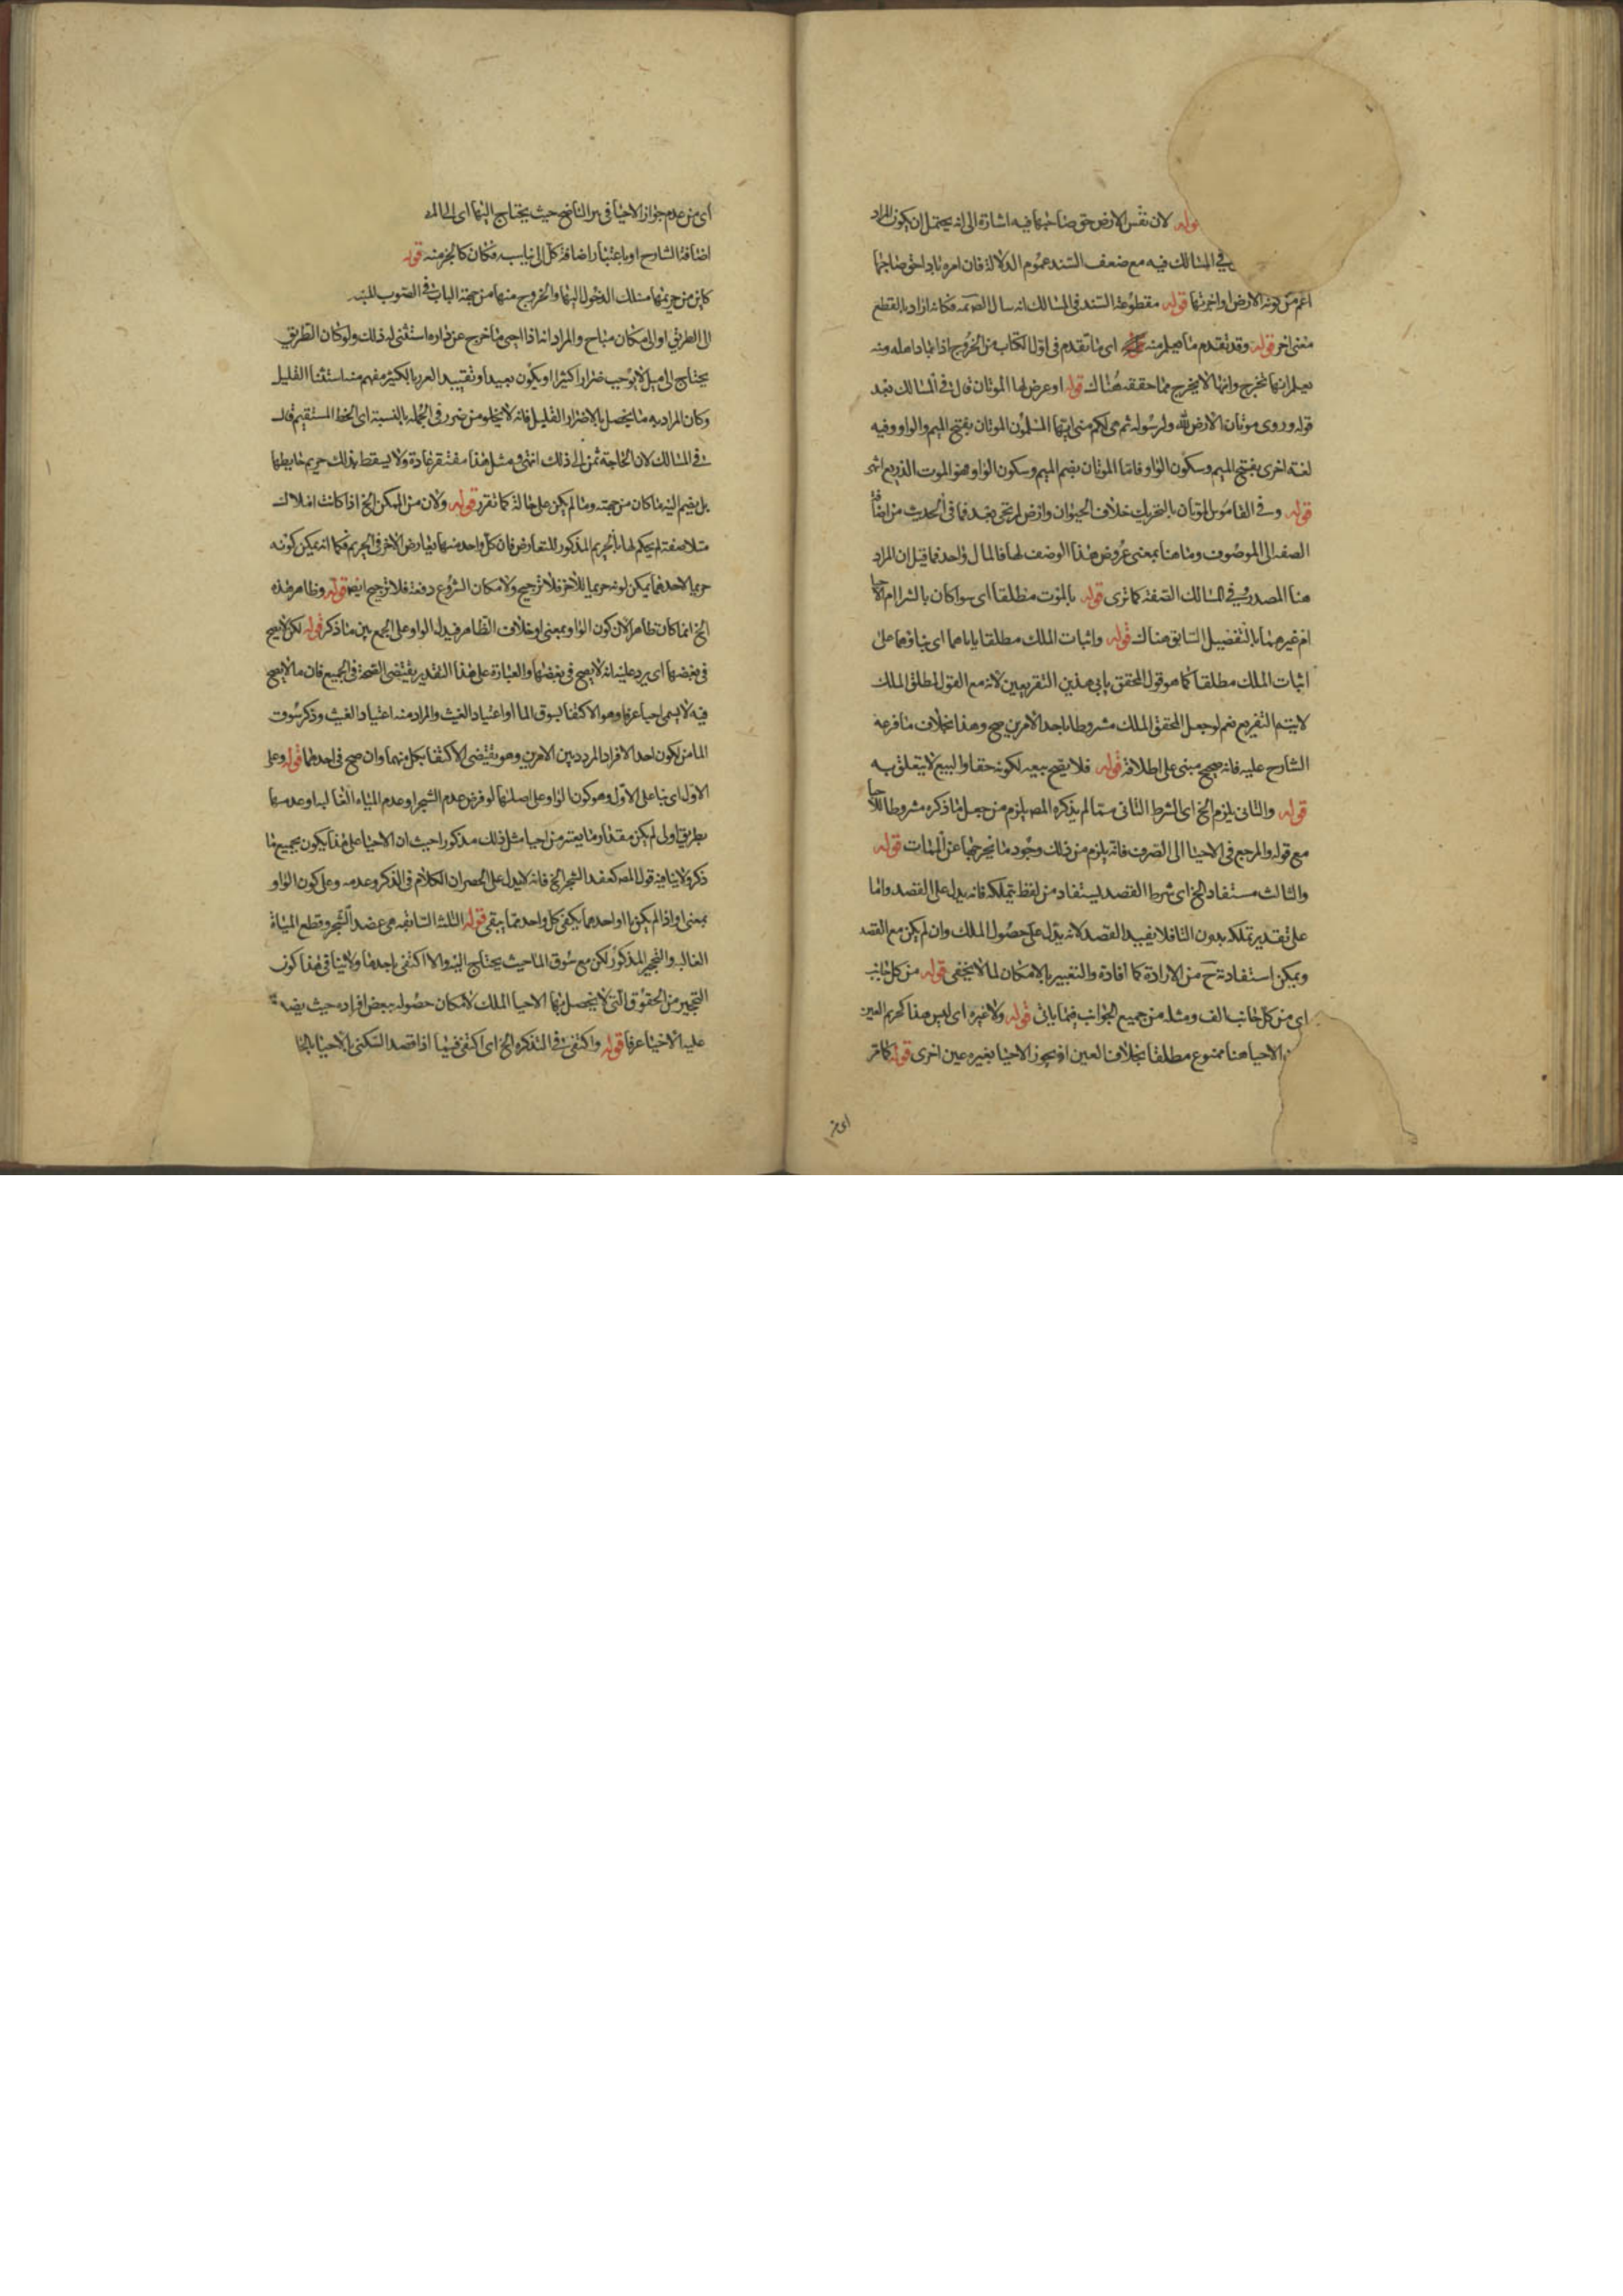 قوله لان نفس الارض حق صاحبها فيه اشارة الى انه يحتمل ان يكون المراد
في المسالك فيه مع ضعف السند عموم الدلالة فان امره باداء حق صاحبها
اعم من كونه الارض او اجرتها قوله مقطوعة السند في المسالك انه فكانه اراد بالقطع
معنى اخر قوله وقد تقدم ما يعلم منه اى ما تقدم فى اول الكتاب من الخروج اذا باد اهله ومنه
يعلم انها تخرج وانها لا يخرج مما حققه هناك قوله او عرض لها الموتان قال في المسالك بعد
قوله وروى موتان الارض لله ولرسوله ثم هى لكم منى ايها المسلمون الموتان بفتح الميم والواو وفيه
لغة اخرى بفتح الميم وسكون الواو فاما الموتان بضم الميم وسكون الواو فهو الموت الذريع
قوله وفي القاموس الموتان بالتحريك خلاف الحيوان وارض لم تحى بعد فما فى الحديث من اضافة
الصفة الى الموصوف وما هنا بمعنى عروض هذا الوصف لها فالمال واحد فما قيل ان المراد
هنا المصدر في المسالك الصفة كما ترى قوله بالموت مطلقا اى سواء كان بالشراء ام الاحيا
ام غيرهما بالتفصيل السابق هناك قوله واثبات الملك مطلقا ياباهما اى بناؤهما على
اثبات الملك مطلقا كما هو قول المحقق يابى هذين التفريعين لانه مع القول بمطلق الملك
لا يتم التفريع نعم لو جعل المحقق الملك مشروطا باحد الامرين صح وهذا بخلاف ما فرعه
الشارح عليه فانه صحيح مبنى على اطلاقه قوله فلا يصح بيعه لكونه حقا والبيع لا يتعلق به
قوله والثانى يلزم الخ اى الشرط الثانى مما لم يذكره المصـ يلزم من جعل ما ذكره مشروطا للاحيا
مع قوله والمرجع فى الاحيا الى العرف فانه يلزم من ذلك وجود ما يخرجها عن الموات قوله
والثالث مستفاد الخ اى شرط القصد يستفاد من لفظ يتملكه فانه يدل على القصد واما
على تقدير تملكه بدون التا فلا يفيد القصد لانه يدل على حصول الملك وان لم يكن مع القصد
ويمكن استفادته ح من الارادة كما افاده والتعبير بالامكان لما لا يخفى قوله من كل جانب
اى من كل جانب الف ومثله من جميع الجوانب فيما ياتى قوله ولا غيره اى ليس هذا كحريم العين
الاحيا هنا ممنوع مطلقا بخلاف العين اذ يجوز الاحيا بغيره عين اخرى قوله كما مر
اى من
اى من عدم جواز الاحيا فى بير الناضح حيث يحتاج اليها اى
اضافة الشارح او باعتبار اضافة كل الى ما يناسبه فكان كالجزء منه قوله
كاين من حريمها مسلك الدخول اليها والخروج منها من جهة الباب فى الصوب
الى الطريق او الى مكان مباح والمراد انه اذا احيى ما خرج عن داره استثنى له ذلك ولو كان الطريق
يحتاج الى ميل لا يوجب ضررا كثيرا او يكون بعيدا وتقييد الضرر بالكثير مفهم منه استثنا القليل
وكان المراد به ما يحصل بالاضرار القليل فانه لا يخلو من ضرر فى الجملة بالنسبة اى الخط المستقيم قال
في المسالك لان الحاجة تمس الى ذلك انتهى ومثل هذا مغتفر عادة ولا يسقط بذلك حريم حايطها
بل يضم اليه ما كان من جهته وما لم يكن على حاله كما تقرر قوله ولان من الممكن الخ اذا كانت املاك
متلاصقة لم يحكم لها بالحريم المذكور للتعارض فان كل واحد منها يعارض الاخر فى الحريم فكما انه يمكن كونه
حريما لاحدهما يمكن كونه حريما للاخر فلا ترجيح ولامكان الشروع دفعة فلا ترجيح ايضا قوله وظاهر هذه
الخ انما كان ظاهرا لان كون الواو بمعنى او خلاف الظاهر فيدل الواو على الجمع بين ما ذكر قوله لكن لا يصح
فى بعضها اى يرد عليه انه لا يصح فى بعضها والعبارة على هذا التقدير يقتضى الصحة فى الجميع فان ما لا يصح
فيه لا يسمى احيا عرفا وهو الاكتفا بسوق الما او اعتياد الغيث والمراد منه اعتياد الغيث وذكر سوق
الما من يكون احد الافراد المردد بين الامرين وهو يقتضى الاكتفا بكل منهما وان صح فى احدهما قوله وعلى
الاول اى بنا على الاول وهو كون الواو على اصلها لو فرض عدم الشجر او عدم المياه الغالبة او عدمهما
بطريق اولى لم يكن مقدار ما يعتبر من احيا مثل ذلك مذكورا حيث ان الاحيا على هذا يكون بجميع ما
ذكر ولا ينافيه قول المصـ كعضد الشجر الخ فانه لا يدل على انحصار الكلام فى الذكر وعدمه وعلى كون الواو
بمعنى او اذا لم يكن الا واحد مما يكفى كل واحد مما يبقى قوله الثلثة السابقة هى عضد الشجر وقطع المياه
الغالبة والتحجير المذكور لكن مع سوق الما حيث يحتاج اليه والا اكتفى باحدها ولا ينافى هذا كون
التحجير من الحقوق التى لا يحصل بها الاحيا الملك لامكان حصوله ببعض افراده حيث يصدق
عليه الاحيا عرفا قوله واكتفى في التذكره الخ اى اكتفى فيها اذا قصد السكنى بالاحيا